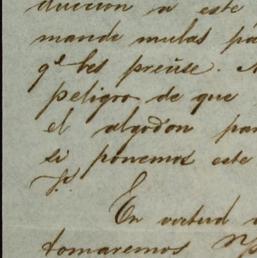 duccion a este
mande mulas pa
qe les precise. A
peligro de que
el algodon par
si ponemos este
En virtud
tomaremos